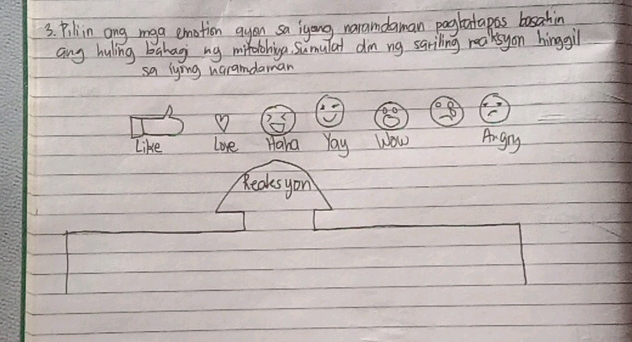 3. Piliin ang mga emotion ayon sa iyong naramdaman pagkatapos basahin
ang huling bahagi ng mitolohiya. Sumulat din ng sariling reaksyon hinggil
sa iyong naramdaman
Like Love Haha Yay Wow Angry
Reaksyon